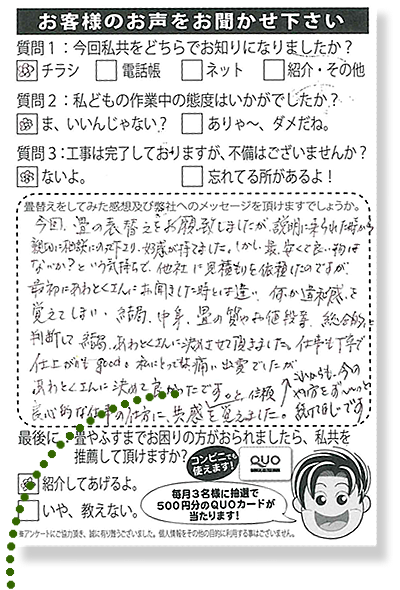 お客様のお声をお聞かせ下さい
質問1：今回私共をどちらでお知りになりましたか？
チラシ 電話帳 ネット 紹介・その他
質問2：私どもの作業中の態度はいかがでしたか？
ま、いいんじゃない？ ありゃ～、ダメだね。
質問3：工事は完了しておりますが、不備はございませんか？
ないよ。 忘れてる所があるよ！
畳替えをしてみた感想及び弊社へのメッセージを頂けますでしょうか。
今回、畳の表替えをお願い致しましたが、説明に来られた時から
親切に相談にのって下さり、好感が持てました。しかし、最、安くて良い物は
ないか？という気持ちで、他社に見積もりを依頼したのですが、
最初にあわとくさんにお聞きした時とは違い、何か違和感を
覚えてしまい、結局、中身、畳の質やお値段等、総合的に
判断して、結局、あわとくさんに決めさせて頂きました。仕事も丁寧で
仕上がりもgood。私にとって 痛い出費でしたが
あわとくさんに決めて良かったです。
良心的な仕事の仕方に、共感を覚えました。
これからも、今の
やり方をずーっと
続けてほしいです
最後に、畳やふすまでお困りの方がおられましたら、私共を
推薦して頂けますか？
コンビニでも
使えます！
QUO
紹介してあげるよ。
いや、教えない。
毎月3名様に抽選で
500円分のQUOカードが
当たります！
※アンケートにご協力頂き、誠に有り難うございました。個人情報をその他の目的に利用する事はございません。